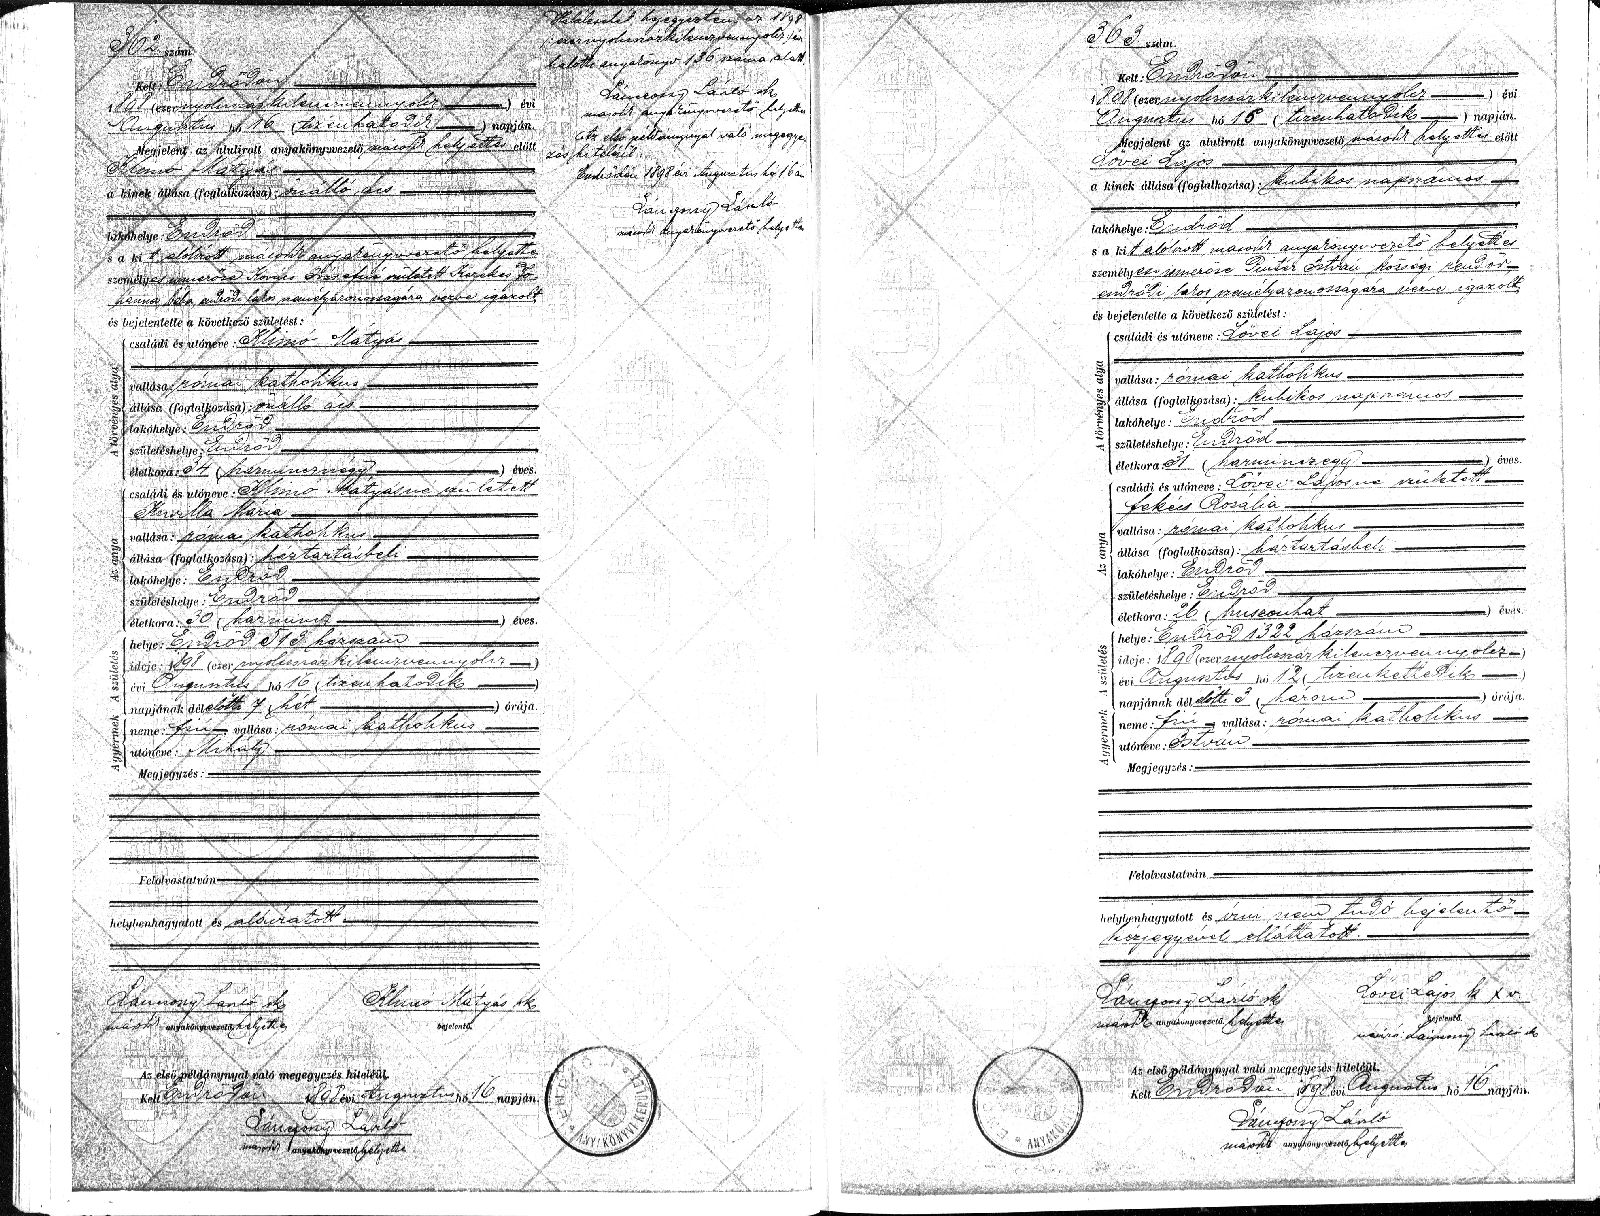 302 szám.
Kelt: Endrődön
1898 (ezernyolczszázkilenczvennyolcz) évi
Augusztus hó 16 (tizenhatodik) napján.
Megjelent az alulirott anyakönyvvezető másodk helyettes előtt
Klimó Mátyás
a kinek állása (foglalkozása): önálló ács
lakóhelye: Endrőd
s a kit alolirott másodk anyakönyvvezető helyettes
személyesen ismerőse Kovács született Kerekes
endrődi lakos személyazonosságára nézve igazolt
és bejelentette a következő születést:
A törvényes atya
családi és utóneve: Klimó Mátyás
vallása: római katholikus
állása (foglalkozása): önálló ács
lakóhelye: Endrőd
születéshelye: Endrőd
életkora: 34 (harmincznégy) éves.
Az anya
családi és utóneve: Klimó Mátyásné született
Mária
vallása: római katholikus
állása (foglalkozása): háztartásbeli
lakóhelye: Endrőd
születéshelye: Endrőd
életkora: 30 (harmincz) éves.
A születés
helye: Endrőd házszám
ideje: 1898 (ezernyolczszázkilenczvennyolcz)
évi Augusztus hó 16 (tizenhatodik)
napjának délelőtti 7 (hét) órája.
A gyermek
neme: fiu vallása: római katholikus
utóneve: Mihály
Megjegyzés:
Felolvastatván
helybenhagyatott és aláiratott
Lánczony László sk
másodk anyakönyvvezető helyettes
Klimó Mátyás sk
bejelentő.
Az első példánynyal való megegyezés hiteléül.
Kelt Endrődön 1898 évi Augusztus hó 16 napján.
Lánczony László
másodk anyakönyvvezető helyettes
az 1898
(ezernyolczszázkilenczvennyolcz) évi
halotti anyakönyv 136 száma alatt
Lánczony László sk
másodk anyakönyvvezető helyettes
Az első példánynyal való megegye-
zés hiteléül.
Endrődön 1898 évi Augusztus hó 16 án
Lánczony László
másodk anyakönyvvezető helyettes
363 szám.
Kelt: Endrődön
1898 (ezernyolczszázkilenczvennyolcz) évi
Augusztus hó 16 (tizenhatodik) napján.
Megjelent az alulirott anyakönyvvezető másodk helyettes előtt
Lövei Lajos
a kinek állása (foglalkozása): kubikos napszámos
lakóhelye: Endrőd
s a kit alolirott másodk anyakönyvvezető helyettes
személyesen ismerőse Pintér István községi rendőr
endrődi lakos személyazonosságára nézve igazolt,
és bejelentette a következő születést:
A törvényes atya
családi és utóneve: Lövei Lajos
vallása: római katholikus
állása (foglalkozása): kubikos napszámos
lakóhelye: Endrőd
születéshelye: Endrőd
életkora: 31 (harminczegy) éves.
Az anya
családi és utóneve: Lövei Lajosné született
Rosália
vallása: római katholikus
állása (foglalkozása): háztartásbeli
lakóhelye: Endrőd
születéshelye: Endrőd
életkora: 26 (huszonhat) éves.
A születés
helye: Endrőd 1322 házszám
ideje: 1898 (ezernyolczszázkilenczvennyolcz)
évi Augusztus hó 12 (tizenkettedik)
napjának délelőtti 3 (három) órája.
A gyermek
neme: fiu vallása: római katholikus
utóneve: István
Megjegyzés:
Felolvastatván
helybenhagyatott és irni nem tudó bejelentő
kézjegyével elláttatott.
Lánczony László sk
másodk anyakönyvvezető helyettes
Lövei Lajos k x v
bejelentő.
Lánczony László sk
Az első példánynyal való megegyezés hiteléül.
Kelt Endrődön 1898 évi Augusztus hó 16 napján.
Lánczony László
másodk anyakönyvvezető helyettes